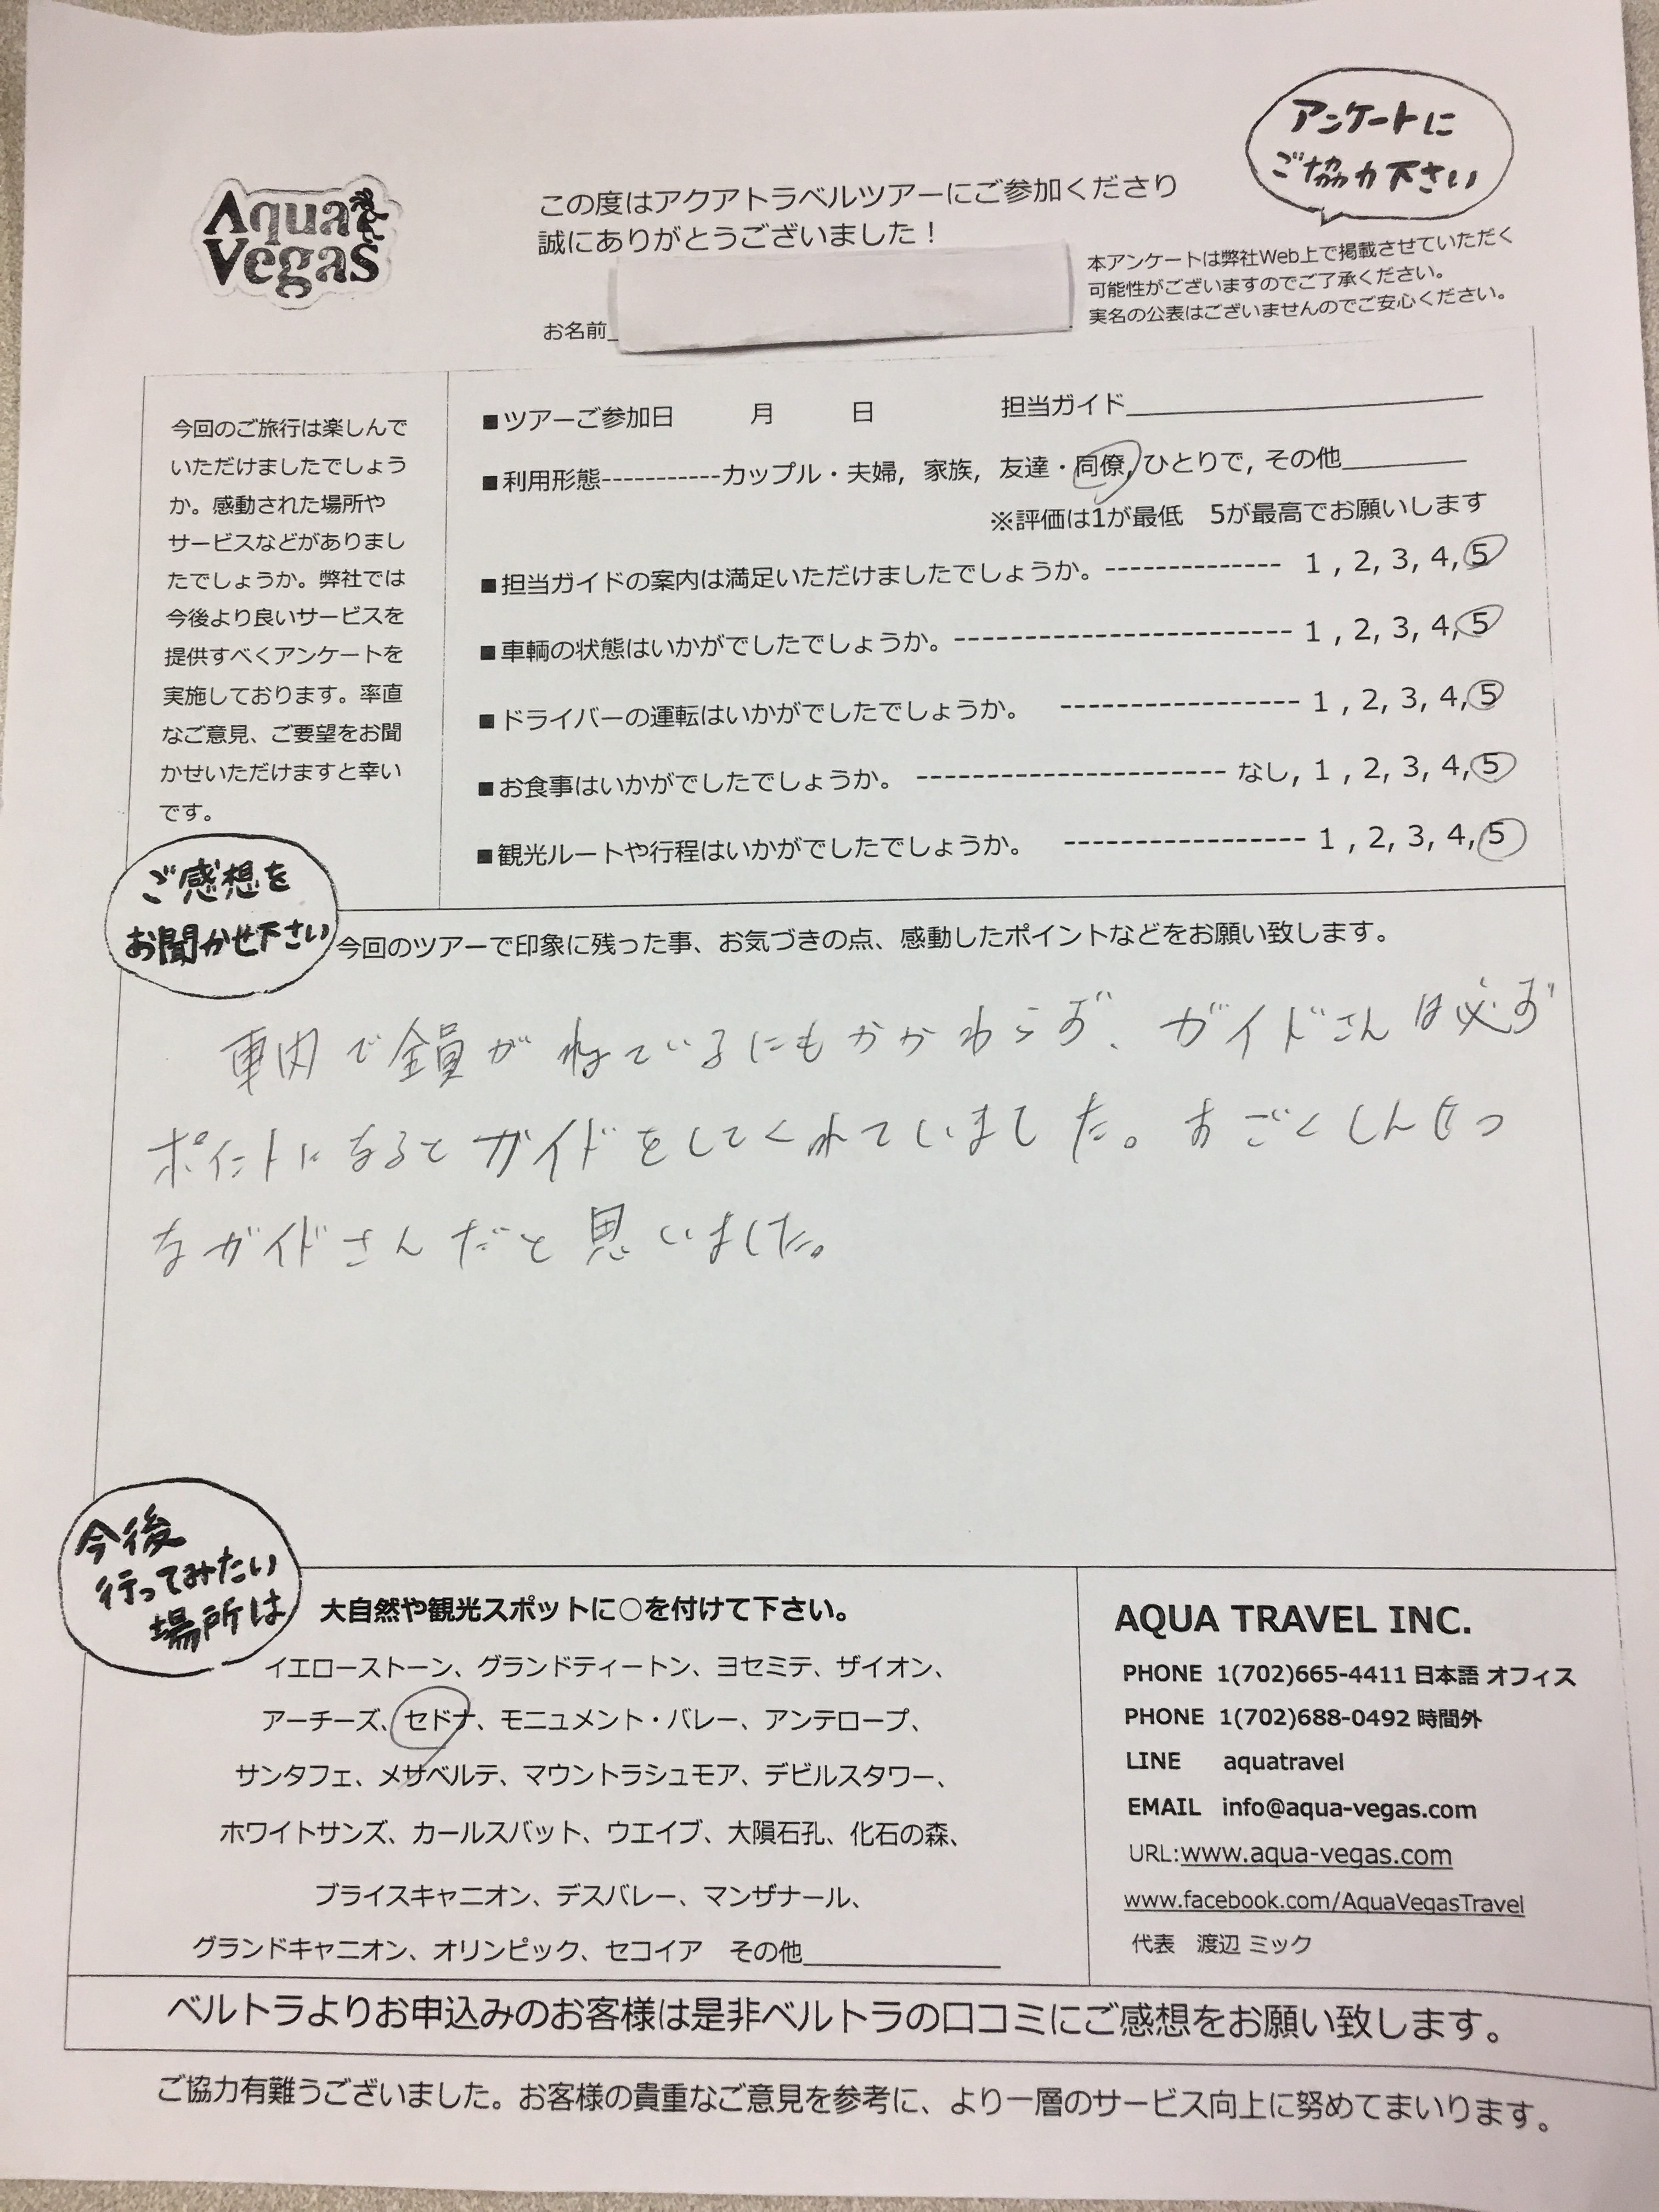 アンケートに
ご協力下さい
Aqua
Vegas
この度はアクアトラベルツアーにご参加くださり
誠にありがとうございました！
本アンケートは弊社Web上で掲載させていただく
可能性がございますのでご了承ください。
実名の公表はございませんのでご安心ください。
お名前_
今回のご旅行は楽しんで
いただけましたでしょう
か。感動された場所や
サービスなどがありまし
たでしょうか。弊社では
今後より良いサービスを
提供すべくアンケートを
実施しております。率直
なご意見、ご要望をお聞
かせいただけますと幸い
です。
■ツアーご参加日 月 日 担当ガイド__________
■利用形態-----------カップル・夫婦, 家族, 友達・同僚, ひとりで, その他________
※評価は1が最低 5が最高でお願いします
■担当ガイドの案内は満足いただけましたでしょうか。-------------- 1 , 2, 3, 4, 5
■車輌の状態はいかがでしたでしょうか。--------------------------- 1 , 2, 3, 4, 5
■ドライバーの運転はいかがでしたでしょうか。 ------------------- 1 , 2, 3, 4, 5
■お食事はいかがでしたでしょうか。 ------------------------- なし, 1 , 2, 3, 4, 5
■観光ルートや行程はいかがでしたでしょうか。 ------------------- 1 , 2, 3, 4, 5
ご感想を
お聞かせ下さい
今回のツアーで印象に残った事、お気づきの点、感動したポイントなどをお願い致します。
車内で全員がねているにもかかわらず、ガイドさんは必ず
ポイントになるとガイドをしてくれていました。すごくしんせつ
なガイドさんだと思いました。
今後
行ってみたい
場所は
大自然や観光スポットに○を付けて下さい。
イエローストーン、グランドティートン、ヨセミテ、ザイオン、
アーチーズ、セドナ、モニュメント・バレー、アンテロープ、
サンタフェ、メサベルテ、マウントラシュモア、デビルスタワー、
ホワイトサンズ、カールスバット、ウエイブ、大隕石孔、化石の森、
ブライスキャニオン、デスバレー、マンザナール、
グランドキャニオン、オリンピック、セコイア その他__________
AQUA TRAVEL INC.
PHONE 1(702)665-4411 日本語 オフィス
PHONE 1(702)688-0492 時間外
LINE aquatravel
EMAIL info@aqua-vegas.com
URL:www.aqua-vegas.com
www.facebook.com/AquaVegasTravel
代表 渡辺 ミック
ベルトラよりお申込みのお客様は是非ベルトラの口コミにご感想をお願い致します。
ご協力有難うございました。お客様の貴重なご意見を参考に、より一層のサービス向上に努めてまいります。